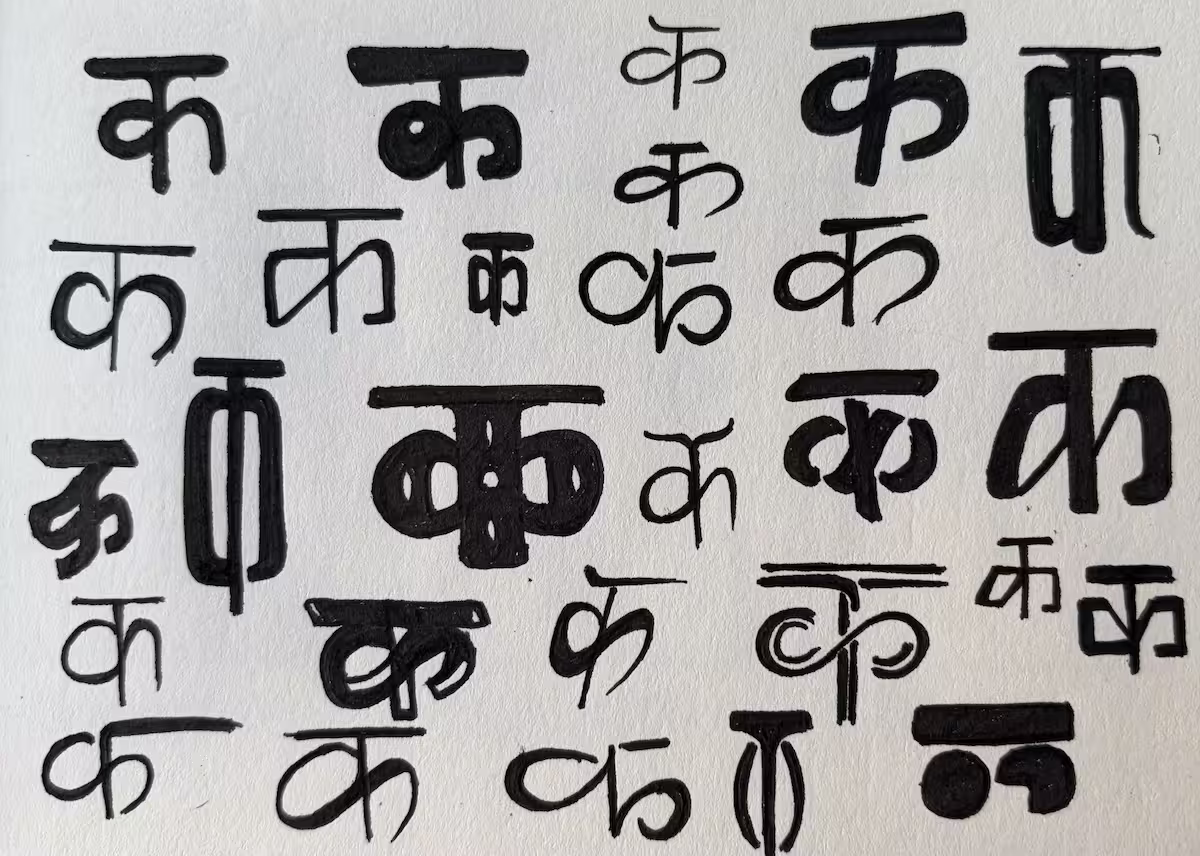 क क क क क
क
क क क क क
क क क क क क
क क क क क क
क क क क क